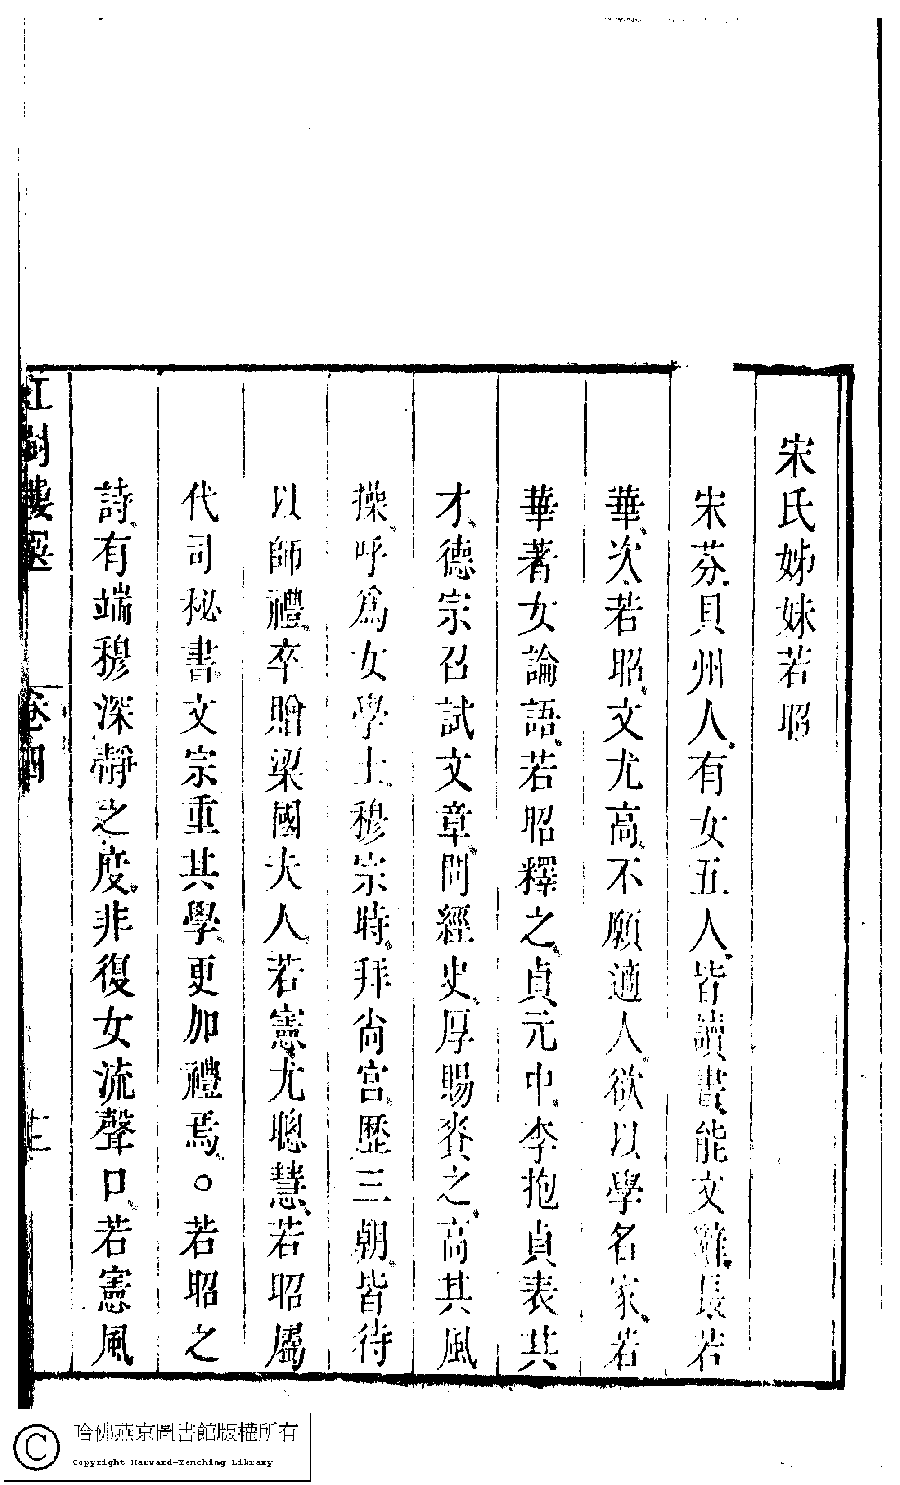 宋氏姊妹若昭
宋芬貝州人有女五人皆讀書能文雖長若
華次若昭文尤高不願適人欲以學名家若
華著女論語若昭釋之貞元中李抱貞表其
才德宗召試文章問經史厚賜賚之高其風
操呼爲女學士穆宗時拜尚宮歷三朝皆待
以師禮卒贈梁國夫人若憲尤聰慧若昭屬
代司秘書文宗重其學更加禮焉。若昭之
詩有端穆深靜之度非復女流聲口若憲風
紅樹樓選 卷四
哈佛燕京圖書館版權所有
Copyright Harvard-Yenching Library